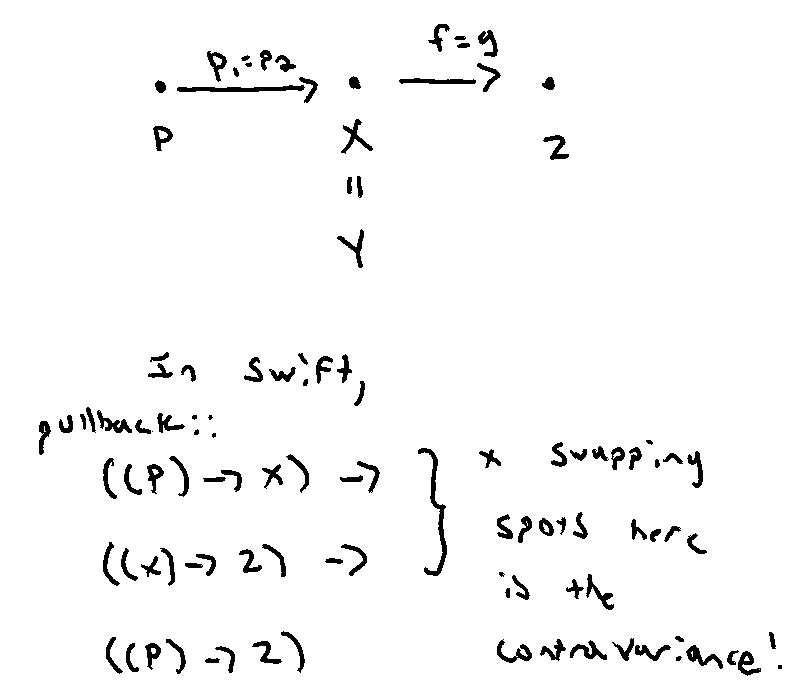 p₁=p₂ f=g
P X Z
=
Y
In Swift,
pullback::
((P) -> X) ->
((X) -> Z) ->
((P) -> Z)
x swapping
spots here
is the
contravariance!